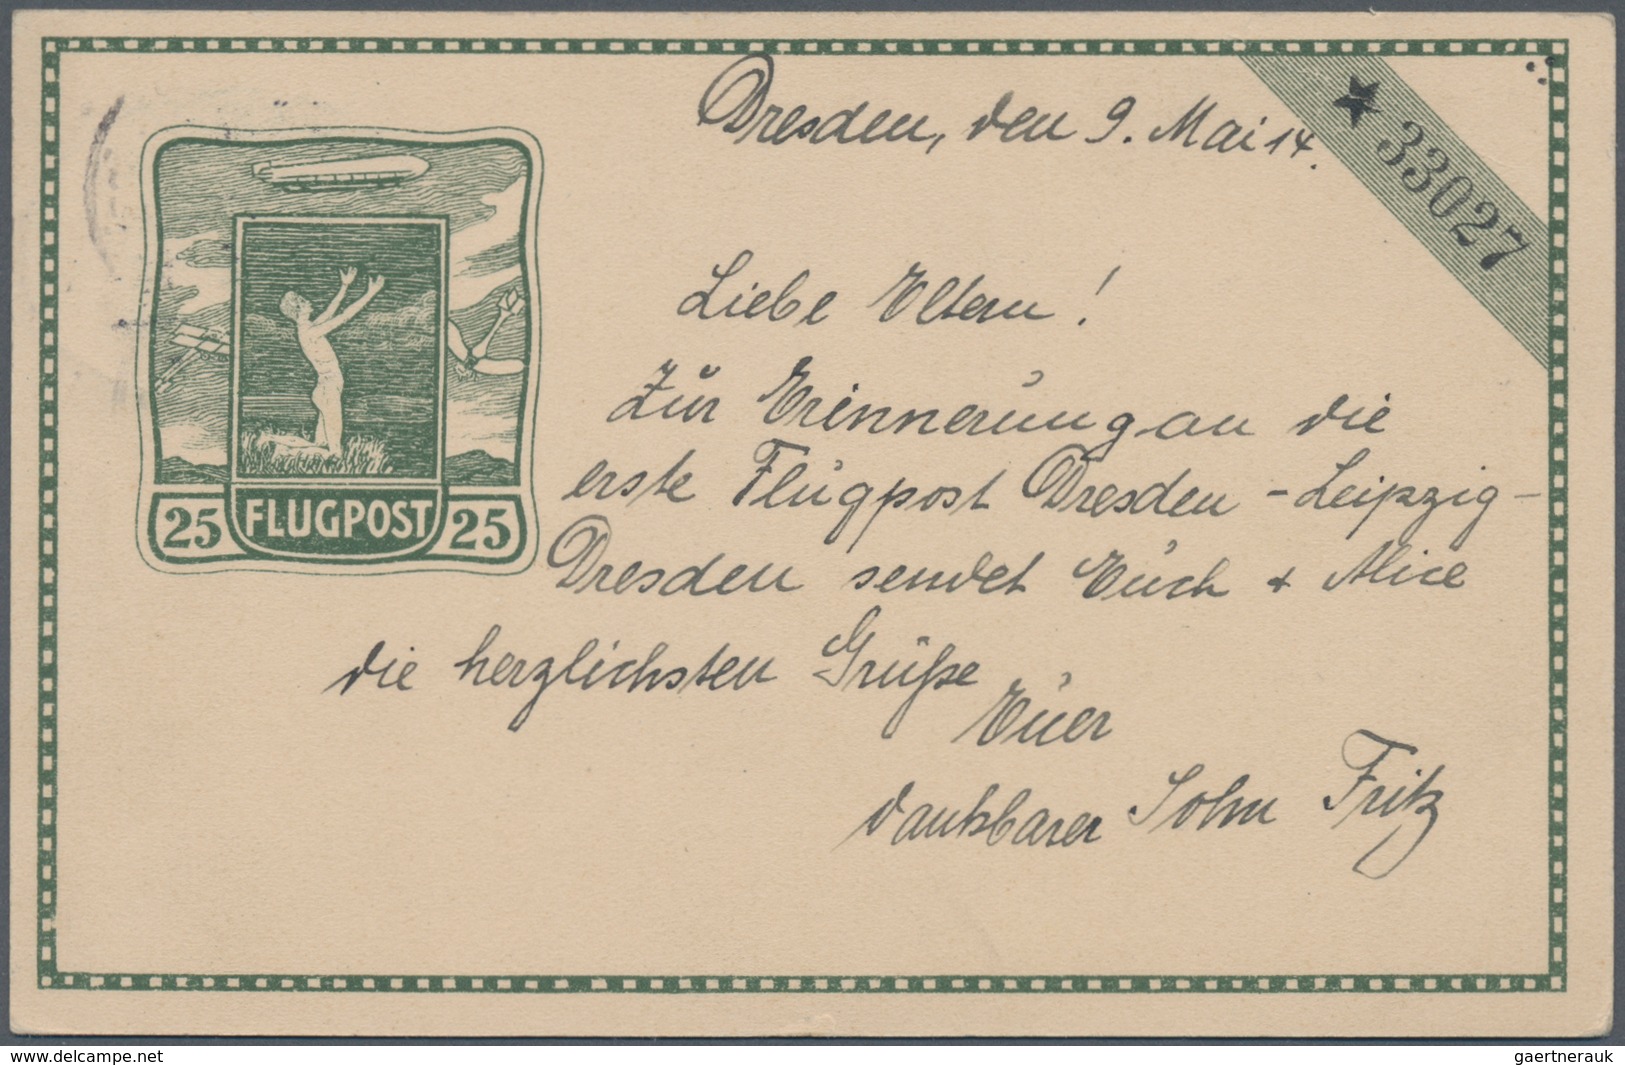 Dresden, den 9. Mai 14.
★ 33027
Liebe Eltern!
Zur Erinnerung an die
erste Flugpost Dresden - Leipzig -
Dresden sendet Euch + Alice
die herzlichsten Grüße
Euer
dankbarer Sohn Fritz
25 FLUGPOST 25
www.delcampe.net
gaertnerauk